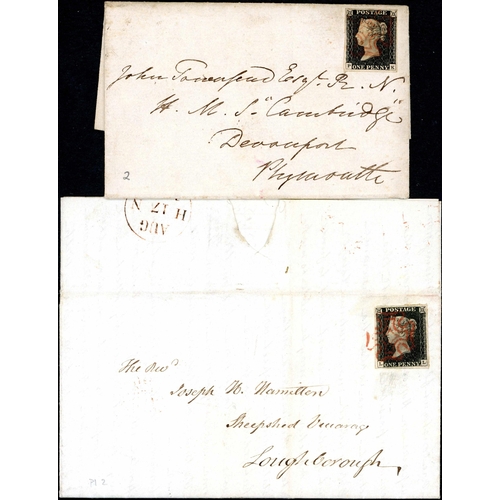 POSTAGE
ONE PENNY
John Townsend Esqr. R. N.
H. M. S. "Cambridge"
Devonport
Plymouth
2
H
17
AUG
POSTAGE
L ONE PENNY
The Revd
Joseph H. Hamilton
Sheepshed Vicarage
Loughborough,